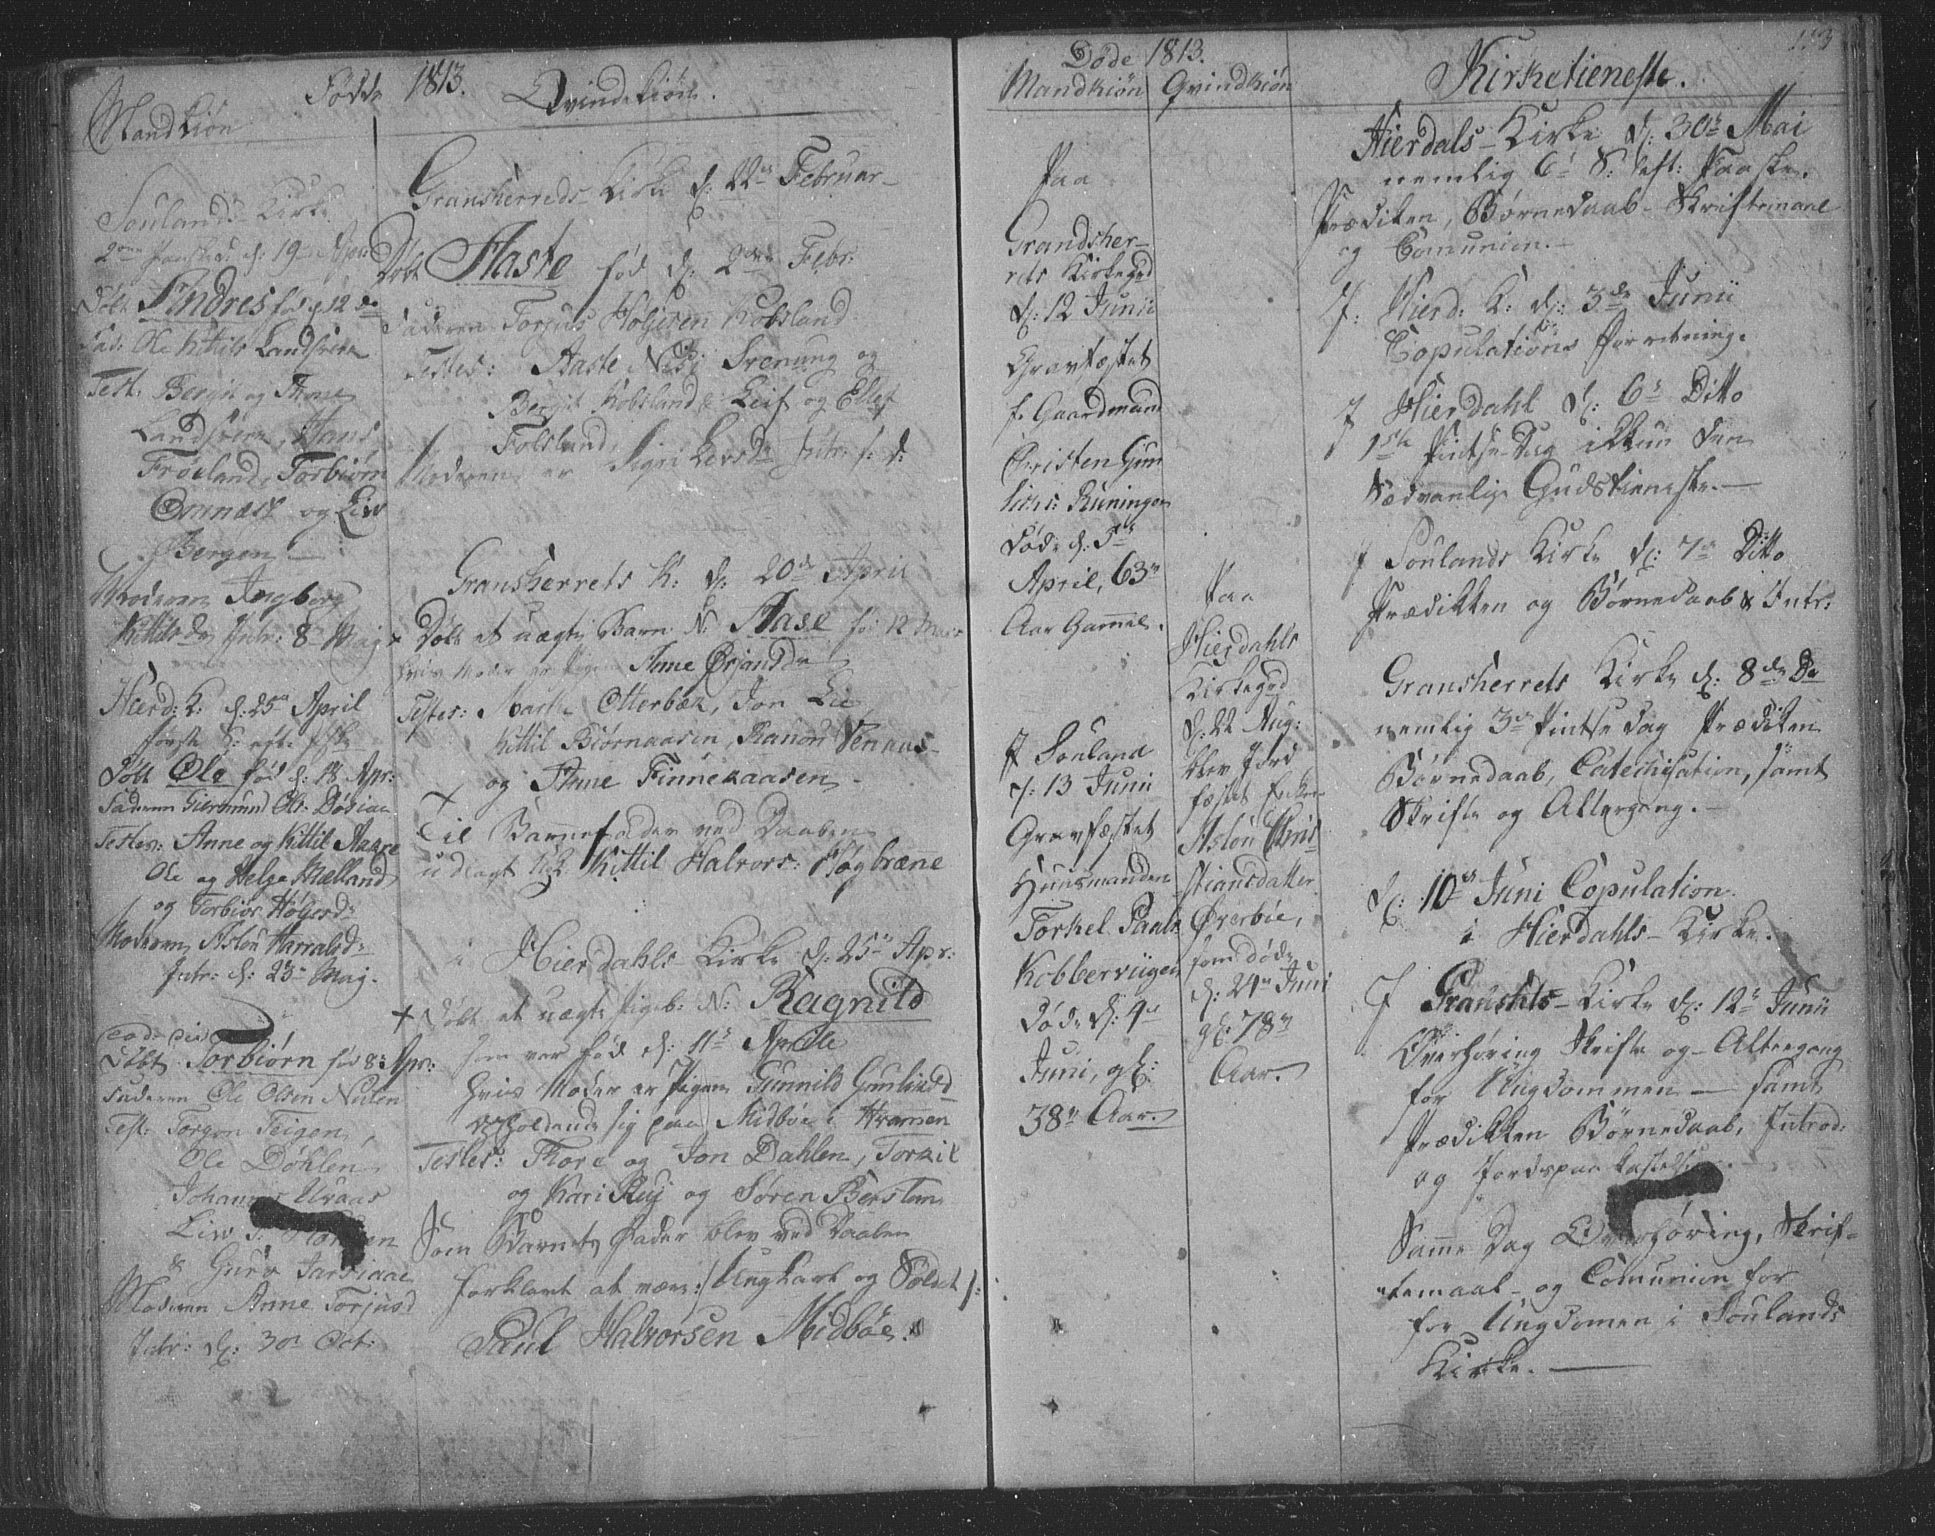 Fødde 1813.
Mandkiøn
Soulands Kirke
2den Paasked. d: 19 April
Døbt Andres fød d 12 do
Fad: Ole Kittils Landsverk
Test: Bergit og Anne
Landsverk, Hans
Frøeland, Torbiørn
Omnæss og Liv
Bergen —
Moderen Ingborg
Kittilsdr Intr: 8de Maj
Hierd: K: d: 25de April
første S: eft: Paaske
Døbt Ole fød d: 18 Apr:
Faderen Giermund Ols:
Testes: Anne og Kittil Aaare
Ole og Helge Mælland
og Torbiør Høljesd:
Moderen Aslou Harralsd:
Intr: d: 23de Maj.
eod: die
Døbt Torbiørn fød 8: Apr:
Faderen Ole Olsen Nuten
Test: Torgon Teigen,
Ole Døhlen
Johannes Uraas
Liv S:
& Guro
Moderen Anne Torjusd
Intr: d: 30te Oct:
Qvindekiøn.
Gransherreds Kirke d: 22de Februar
Døbt Aaste fød d: 2den Febr:
Faderen Torjus Høljesen Kobsland
Testes: Aaste Næs, Svenung og
Bergit Kobsland, Leif og Ellef
Folsland,
Moderen er Sigri Levsdr Intr: s: d:
Gransherrets K: d: 20de April
× Døbt et uægte Barn N: Aase fød 12 Mars
hvis Moder er Pigen Anne Ørjansdr
Testes: Marthe Otterbæk, Jon Lie
Kittil Biørnaasen, Ranou Venaas
og Anne Finnekaasen
× Til Barnefader ved Daaben
udlagt U:K: Kittil Halvors: Høgbrænne
i Hierdahls Kirke d: 25de Apr:
× Døbt et uægte Pigeb: N: Ragnild
som var fød d: 11te Aprile
hvis Moder er Pigen Gunnild Gunlixsd
opholdende sig paa Midbøe i Hramen
Testes: Thore og Jon Dahlen, Torkil
og Kari Ruj og Søren Berstan
Som Barnets Fader blev ved Daaben
forklaret at være: /: Ungkarl og Soldat :/
Paul Halvorsen Midbøe.
Døde 1813.
Mandkiøn
Paa
Grandsher-
rets Kirkegrd
d: 12 Junii
Gravfæstet
f: Gaardmand
Christen Gun
Runingen
Døde d: 5te
April, 63de
Aar Gammel.
I Souland
d: 13 Junii
Gravfæstet
Huusmanden
Torkel Pauls
Kobbervügen
Døde d: 4de
Juni, gl:
38te Aar.
Qvindkiøn
Paa
Hierdahls
Kirkegrd
d: 22 Aug:
blev Jord
fæstet Enken
Aslou Chris-
stiansdatter
Øverbøe,
som døde
d: 24de Juni
gl: 78de
Aar.
113
Kirketieneste.
Hierdals Kirke d: 30te Mai
nemlig 6te S: Eft: Paaske.
Prædiken, Børnedaab Skriftemaal
og Comunion.
I: Hierd: K: d: 3de Junii
Copulations Forretning.
I Hierdahl d: 6te Ditto
1ste Pintse-Dag ikkun den
Sædvanlige Gudstieneste. —
I Soulands Kirke d: 7de Ditto
Prædikken og Børnedaab & Intr:
Gransherrets Kirke d: 8de Do
nemlig 3de Pintsedag Prædiken
Børnedaab, Catechisation, samt
Skrifte og Altergang. —
d: 10de Juni Copulation
i Hierdahls Kirke.
I Granshts Kirke d: 12te Junii
Overhøring Skrifte og Altergang
for Ungdommen — samt
Prædikken Børnedaab, Introd:
og Jordspaakastelse —
Samme Dag Overhøring, Skrif-
temaal og Comunion for
for Ungdomen i Soulands
Kirke. —